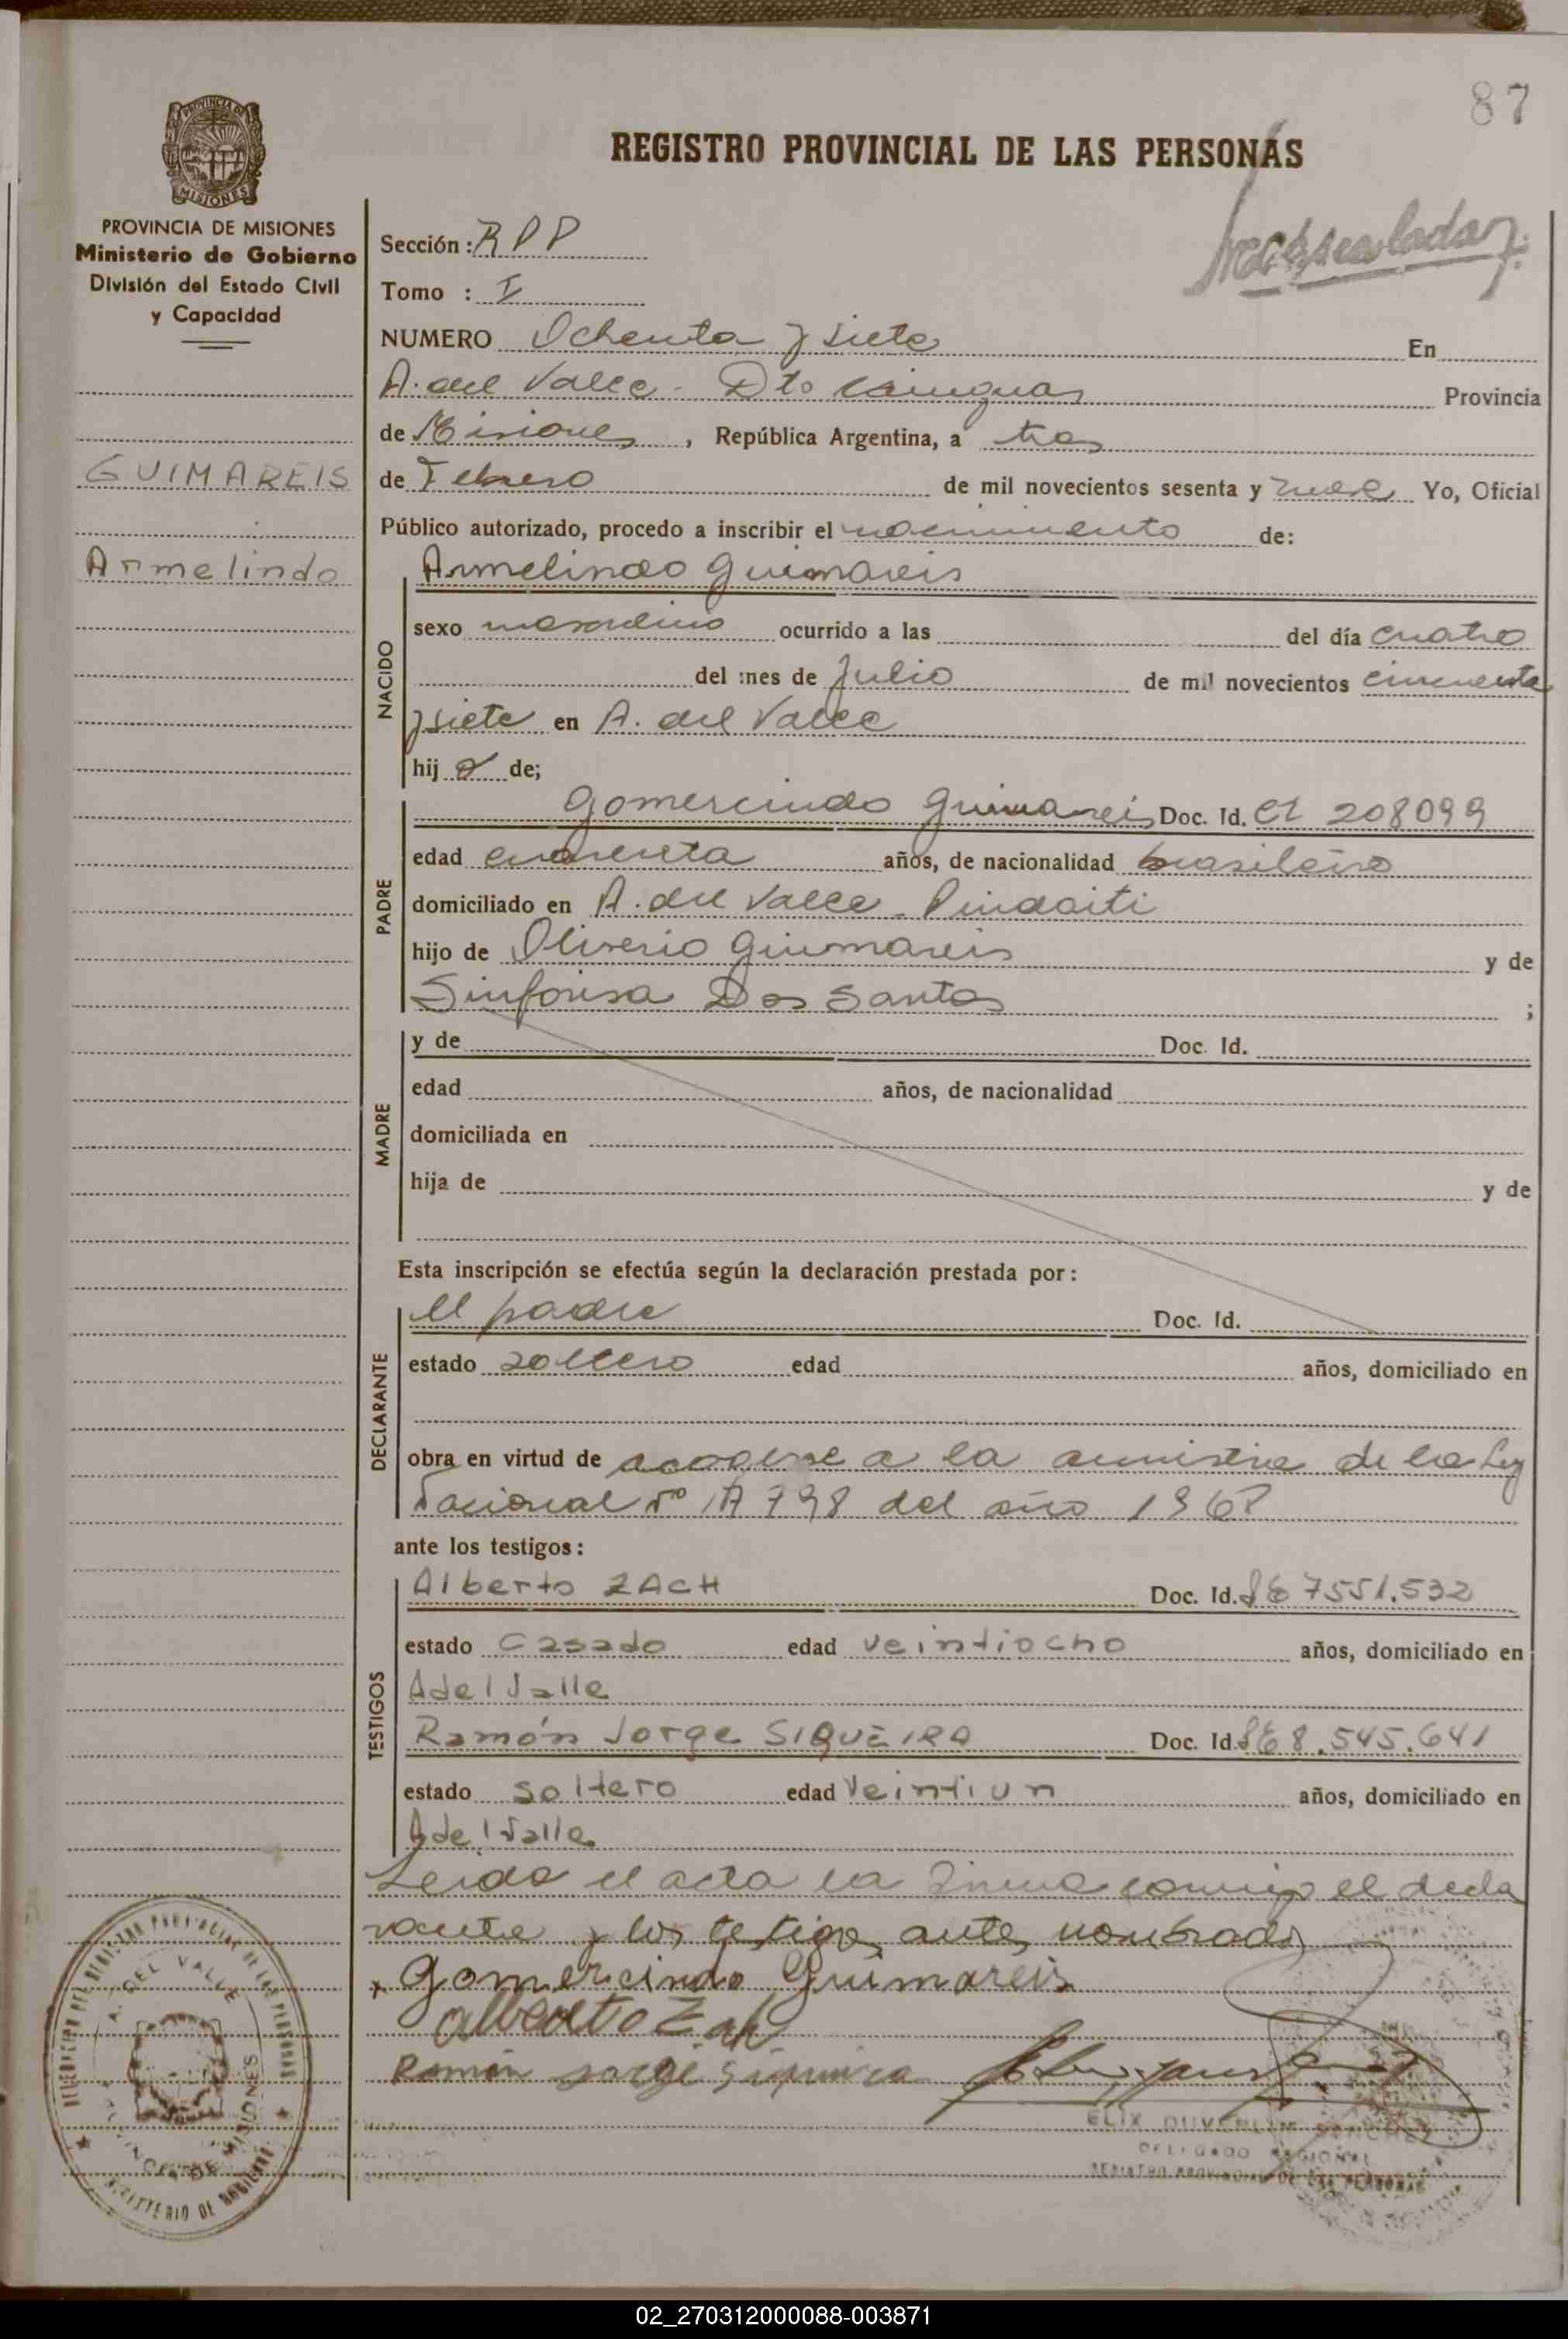 87
REGISTRO PROVINCIAL DE LAS PERSONAS
PROVINCIA DE
MISIONES
PROVINCIA DE MISIONES
Ministerio de Gobierno
División del Estado Civil
y Capacidad
GUIMAREIS
Armelindo
Sección : RPP
Tomo : I
NUMERO Ochenta y siete En
A. del Valle - Dto Cainguas Provincia
de Misiones, República Argentina, a tres
de Febrero de mil novecientos sesenta y nueve Yo, Oficial
Público autorizado, procedo a inscribir el nacimiento de:
NACIDO
Armelindo Guimareis
sexo masculino ocurrido a las del día cuatro
del mes de Julio de mil novecientos cincuenta
y siete en A. del Valle
hij o de;
PADRE
Gomercindo Guimareis Doc. Id. CI 208099
edad cuarenta años, de nacionalidad brasileiro
domiciliado en A. del Valle - Pindaiti
hijo de Oliverio Guimareis y de
Sinforisa Dos Santos ;
MADRE
y de Doc. Id.
edad años, de nacionalidad
domiciliada en
hija de y de
Esta inscripción se efectúa según la declaración prestada por:
DECLARANTE
El padre Doc. Id.
estado soltero edad años, domiciliado en
obra en virtud de acogerse a la amnistia de la Ley
Nacional Nº 17798 del año 1968
ante los testigos:
TESTIGOS
Alberto ZACH Doc. Id. LE 7551.532
estado Casado edad veintiocho años, domiciliado en
A del Valle
Ramón Jorge SIQUEIRA Doc. Id. LE 8.545.641
estado soltero edad Veintiun años, domiciliado en
A del Valle
Leida el acta la firma conmigo el decla
rante y los testigos antes nombrados
x Gomercindo Guimareis
alberto Zach
Ramón Jorge Siqueira
DELEGADO REGIONAL
REGISTRO PROVINCIAL DE LAS PERSONAS
A. DEL VALLE
MISIONES
MINISTERIO DE GOBIERNO
02_270312000088-003871